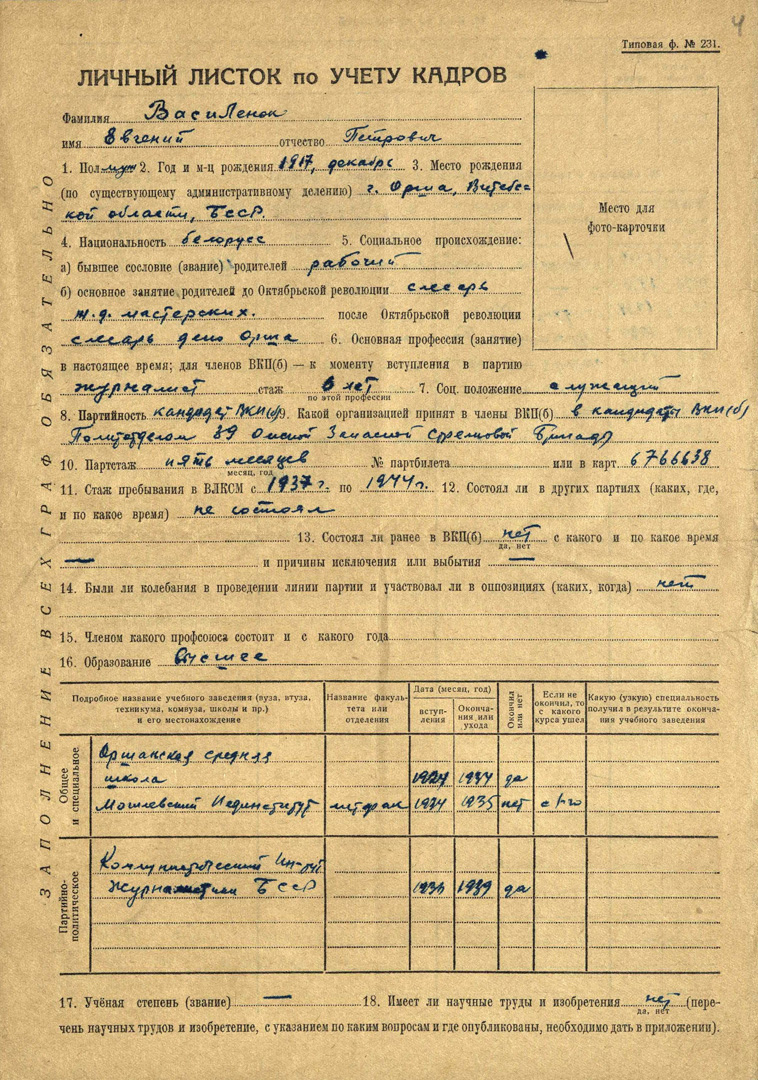 4
Типовая ф. № 231.
ЛИЧНЫЙ ЛИСТОК по УЧЕТУ КАДРОВ
Фамилия Василенок
имя Евгений отчество Петрович
1. Пол муж 2. Год и м-ц рождения 1917, декабрь 3. Место рождения
(по существующему административному делению) г. Орша, Витебс-
кой области, БССР.
4. Национальность белорусс 5. Социальное происхождение:
а) бывшее сословие (звание) родителей рабочий
б) основное занятие родителей до Октябрьской революции слесарь
ж.д. мастерских. после Октябрьской революции
слесарь депо Орша 6. Основная профессия (занятие)
в настоящее время; для членов ВКП(б) — к моменту вступления в партию
журналист стаж 6 лет 7. Соц. положение служащий
по этой профессии
8. Партийность кандидат ВКП(б) 9. Какой организацией принят в члены ВКП(б) в кандидаты ВКП(б)
Политотделом 39 Омской Запасной стрелковой Бригады
10. Партстаж пять месяцев № партбилета или в карт 6766638
месяц, год
11. Стаж пребывания в ВЛКСМ с 1937 г. по 1944 г. 12. Состоял ли в других партиях (каких, где,
и по какое время) не состоял
13. Состоял ли ранее в ВКП(б) нет с какого и по какое время
да, нет
— и причины исключения или выбытия —
14. Были ли колебания в проведении линии партии и участвовал ли в оппозициях (каких, когда) нет
15. Членом какого профсоюса состоит и с какого года
16. Образование высшее
Подробное название учебного заведения (вуза, втуза, техникума, комвуза, школы и пр.) и его местонахождение
Название факуль-тета или отделения
Дата (месяц, год)
вступ-ления
Оконча-ния или ухода
Окончил или нет
Если не окончил, то с какого курса ушел
Какую (узкую) специальность получил в результате оконча-ния учебного заведения
Общее и специальное
Оршанская средняя
школа 1934 да
Могилевский Пединститут литфак 1934 1935 нет с 1-го
Партийно-политическое
Коммунистический Ин-тут
Журналистики БССР 1939 да
17. Учёная степень (звание) — 18. Имеет ли научные труды и изобретения нет (пере-
да, нет
чень научных трудов и изобретение, с указанием по каким вопросам и где опубликованы, необходимо дать в приложении).
Место для
фото-карточки
ЗАПОЛНЕНИЕ ВСЕХ ГРАФ ОБЯЗАТЕЛЬНО